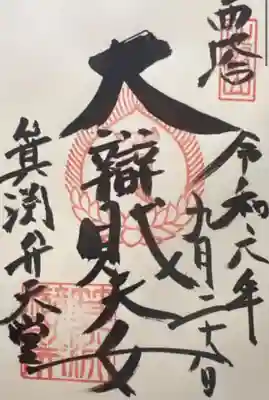 西塔
令和六年九月二十八日
大辯財天女
箕淵弁天堂